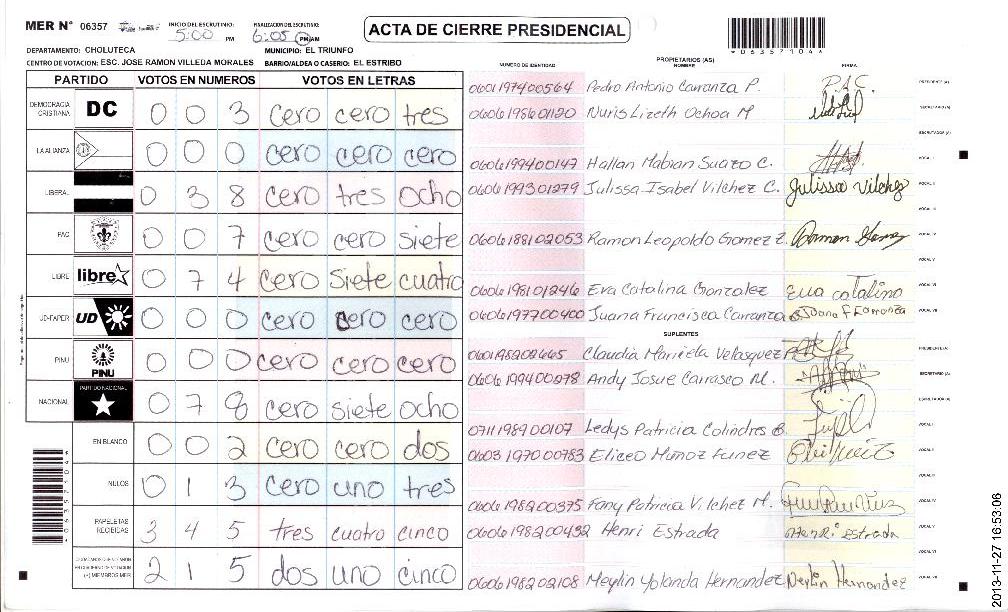 MER N° 06357 INICIO DEL ESCRUTINIO: 5:00 PM FINALIZACION DEL ESCRUTINIO: 6:05 PM AM
ACTA DE CIERRE PRESIDENCIAL
*06357104*
DEPARTAMENTO: CHOLUTECA MUNICIPIO: EL TRIUNFO
CENTRO DE VOTACION: ESC. JOSE RAMON VILLEDA MORALES BARRIO/ALDEA O CASERIO: EL ESTRIBO
PARTIDO VOTOS EN NUMEROS VOTOS EN LETRAS
DEMOCRACIA CRISTIANA DC 0 0 3 cero cero tres
LA ALIANZA 0 0 0 cero cero cero
LIBERAL 0 3 8 cero tres ocho
PAC 0 0 7 cero cero siete
LIBRE libre 0 7 4 cero siete cuatro
UD-FAPER UD 0 0 0 cero cero cero
PINU PINU 0 0 0 cero cero cero
NACIONAL PARTIDO NACIONAL 0 7 8 cero siete ocho
EN BLANCO 0 0 2 cero cero dos
NULOS 0 1 3 cero uno tres
PAPELETAS RECIBIDAS 3 4 5 tres cuatro cinco
CIUDADANOS QUE VOTARON EN CUADERNO DE VOTACION (+) MIEMBROS MER 2 1 5 dos uno cinco
NUMERO DE IDENTIDAD PROPIETARIOS (AS) NOMBRE FIRMA
0601197400564 Pedro Antonio Carranza P. P.A.C. PRESIDENTE (A)
0606198601120 Nuris Lizeth Ochoa M SECRETARIO (A)
ESCRUTADOR (A)
0606199400147 Hallan Mabian Suazo C. VOCAL I
0606199301279 Julissa Isabel Vilchez C. Julissa Vilchez VOCAL II
VOCAL III
0606188102053 Ramon Leopoldo Gomez Z. VOCAL IV
VOCAL V
0606198101246 Eva Catalina Gonzalez Eva Catalina VOCAL VI
0606197700400 Juana Francisca Carranza Juana F Carranza VOCAL VII
SUPLENTES
0601198202665 Claudia Mariela Velasquez PRESIDENTE (A)
0606199400278 Andy Josue Carrasco M. SECRETARIO (A)
ESCRUTADOR (A)
0711198900107 Ledys Patricia Colindres B. VOCAL I
0603197000783 Eliceo Muñoz Funez VOCAL II
0606198200375 Fany Patricia Vilchez M. VOCAL IV
0606198200432 Henri Estrada Henri Estrada VOCAL V
VOCAL VI
0606198202108 Meylin Yolanda Hernandez Meylin Hernandez VOCAL VII
*06357104*
2013-11-27 16:53:06